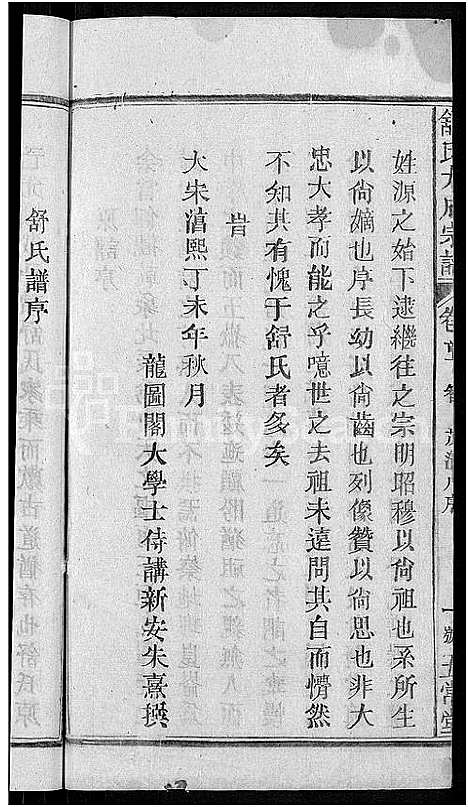 舒氏大成宗譜
姓源之始下逮繼往之宗明昭穆以尙祖也系所生
以尙嫡也序長幼以尙齒也列像贊以尙思也非大
忠大孝而能之乎噫世之去祖未遠問其自而懵然
不知其有愧于舒氏者多矣
旹
大宋滻熙丁未年秋月
龍圖閣大學士侍講新安朱熹撰
舒氏譜序